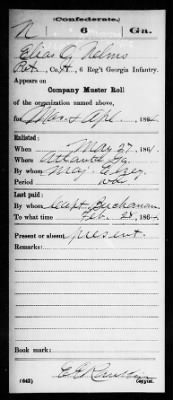 (Confederate.)
N 6 Ga.
Elias C. Nelms
Pvt., Co. , 6 Reg't Georgia Infantry.
Appears on
Company Muster Roll
of the organization named above,
for Mar & Apl, 1864.
Enlisted:
When May 27, 186
Where Atlanta Ga.
By whom Maj.
Period war
Last paid:
By whom Capt Buchanan
To what time Feb. 28, 1864.
Present or absent present.
Remarks:
Book mark:
(642)
Copyist.